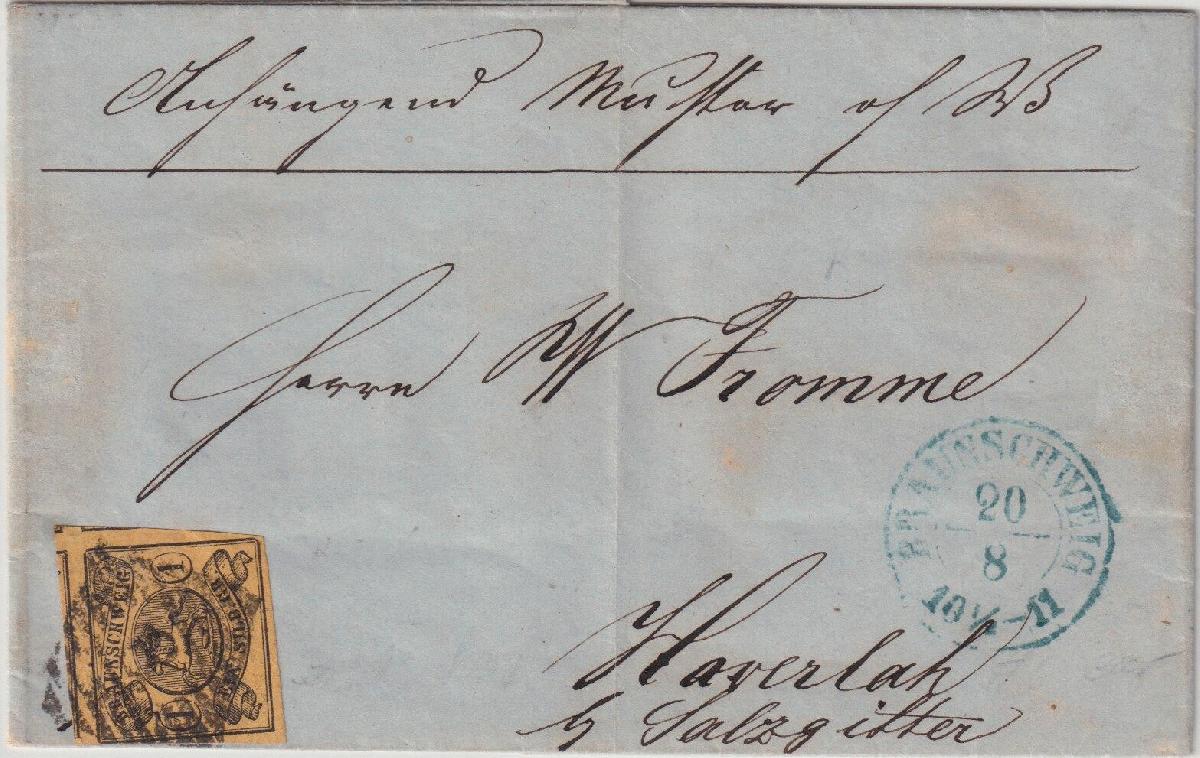 Anhängend Muster o/ W
Herrn W Fromme
BRAUNSCHWEIG
20
8
10½-11
Haverlah
b/ Salzgitter
BRAUNSCHWEIG
1
1